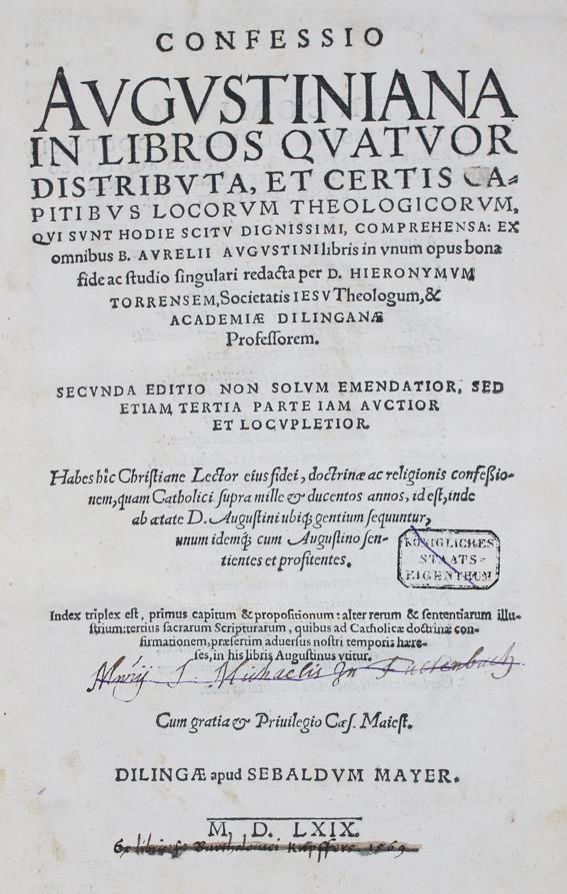 CONFESSIO
AVGVSTINIANA
IN LIBROS QVATVOR
DISTRIBVTA, ET CERTIS CA=
PITIBVS LOCORVM THEOLOGICORVM,
QVI SVNT HODIE SCITV DIGNISSIMI, COMPREHENSA: EX
omnibus B. AVRELII AVGVSTINI libris in vnum opus bona
fide ac studio singulari redacta per D. HIERONYMVM
TORRENSEM, Societatis IESV Theologum, &
ACADEMIÆ DILINGANÆ
Professorem.
SECVNDA EDITIO NON SOLVM EMENDATIOR, SED
ETIAM TERTIA PARTE IAM AVCTIOR
ET LOCVPLETIOR.
Habes hîc Christiane Lector eius fidei, doctrinæ ac religionis confeßio-
nem, quam Catholici supra mille & ducentos annos, id est, inde
ab ætate D. Augustini ubiq; gentium sequuntur,
unum idemq; cum Augustino sen-
tientes et profitentes.
KÖNIGLICHES
STAATS=
EIGENTHUM
Index triplex est, primus capitum & propositionum: alter rerum & sententiarum illu-
strium: tertius sacrarum Scripturarum, quibus ad Catholicæ doctrinæ con-
firmationem, præsertim aduersus nostri temporis hære-
ses, in his libris Augustinus vtitur.
S. Michaelis In
Cum gratia & Priuilegio Cæs. Maiest.
DILINGÆ apud SEBALDVM MAYER.
M, D. LXIX.
Ex libris 1569